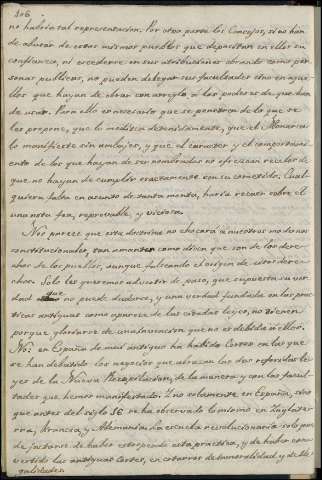 106
no habria tal representacion. Por otra parte los Concejos, si no han
de abusar de estos mismos pueblos que depositan en ellos su
confianza, ni excederse en sus atribuciones obrando como per-
sonas publicas, no pueden delegar sus facultades sino en aque-
llos que hayan de obrar con arreglo a los poderes de que han
de usar. Para ello es necesario que se penetren de lo que se
les propone, que lo mediten detenidamente, que el Monarca
lo manifieste sin ambajes, y que el caracter y el comportami-
ento de los que hayan de ser nombrados no ofrezcan recelo de
que no hayan de cumplir exactamente con su cometido. Cual-
quiera falta en asunto de tanta monta, haria recaer sobre ell
una nota fea, reprovable, y viciosa.
Nos parece que esta doctrina no chocará a nuestros modernos
constitucionales, tan amantes como dicen que son de los dere-
chos de los pueblos, aunque falseando el origen de estos dere-
chos. Solo les queremos advertir de paso, que supuesta su ver-
dad que no puede dudarse, y una verdad fundada en las prac-
ticas antiguas como aparece de las citadas leyes, no tienen
porque gloriarse de una invencion que no es debida a ellos.
No: en España de muí antiguo ha habido Cortes en las que
se han debatido los negocios que abrazan las dos referidas le-
yes de la Nueva Recopilacion, de la manera y con las facul-
tades que hemos manifestado. Y no solamente en España, sino
que antes del siglo 16 se ha observado lo mismo en Inglater-
rra, Francia, y Alemania. La escuela revolucionaria solo pue-
de jactarse de haber estropeado esta práctica, y de haber con-
vertido las antiguas Cortes, en cotarros de inmoralidad y de ile-
galidades.